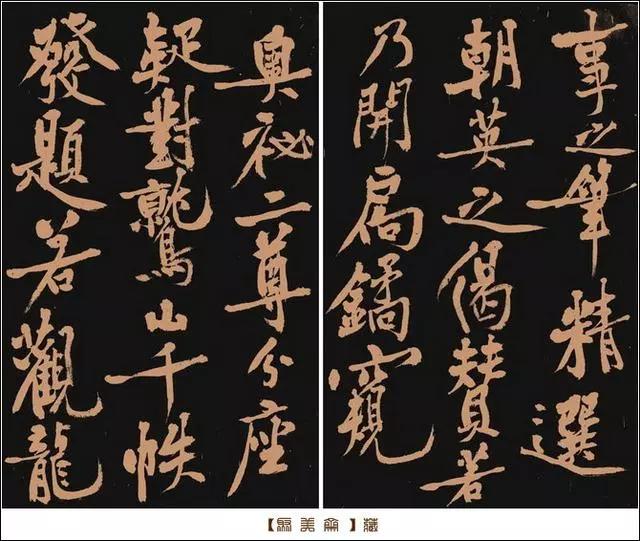 事之筆精選
朝英之偈贊若
乃開扃鐍窺
奥祕二尊分座
疑對鷲山千帙
發題若觀龍
【美】藏